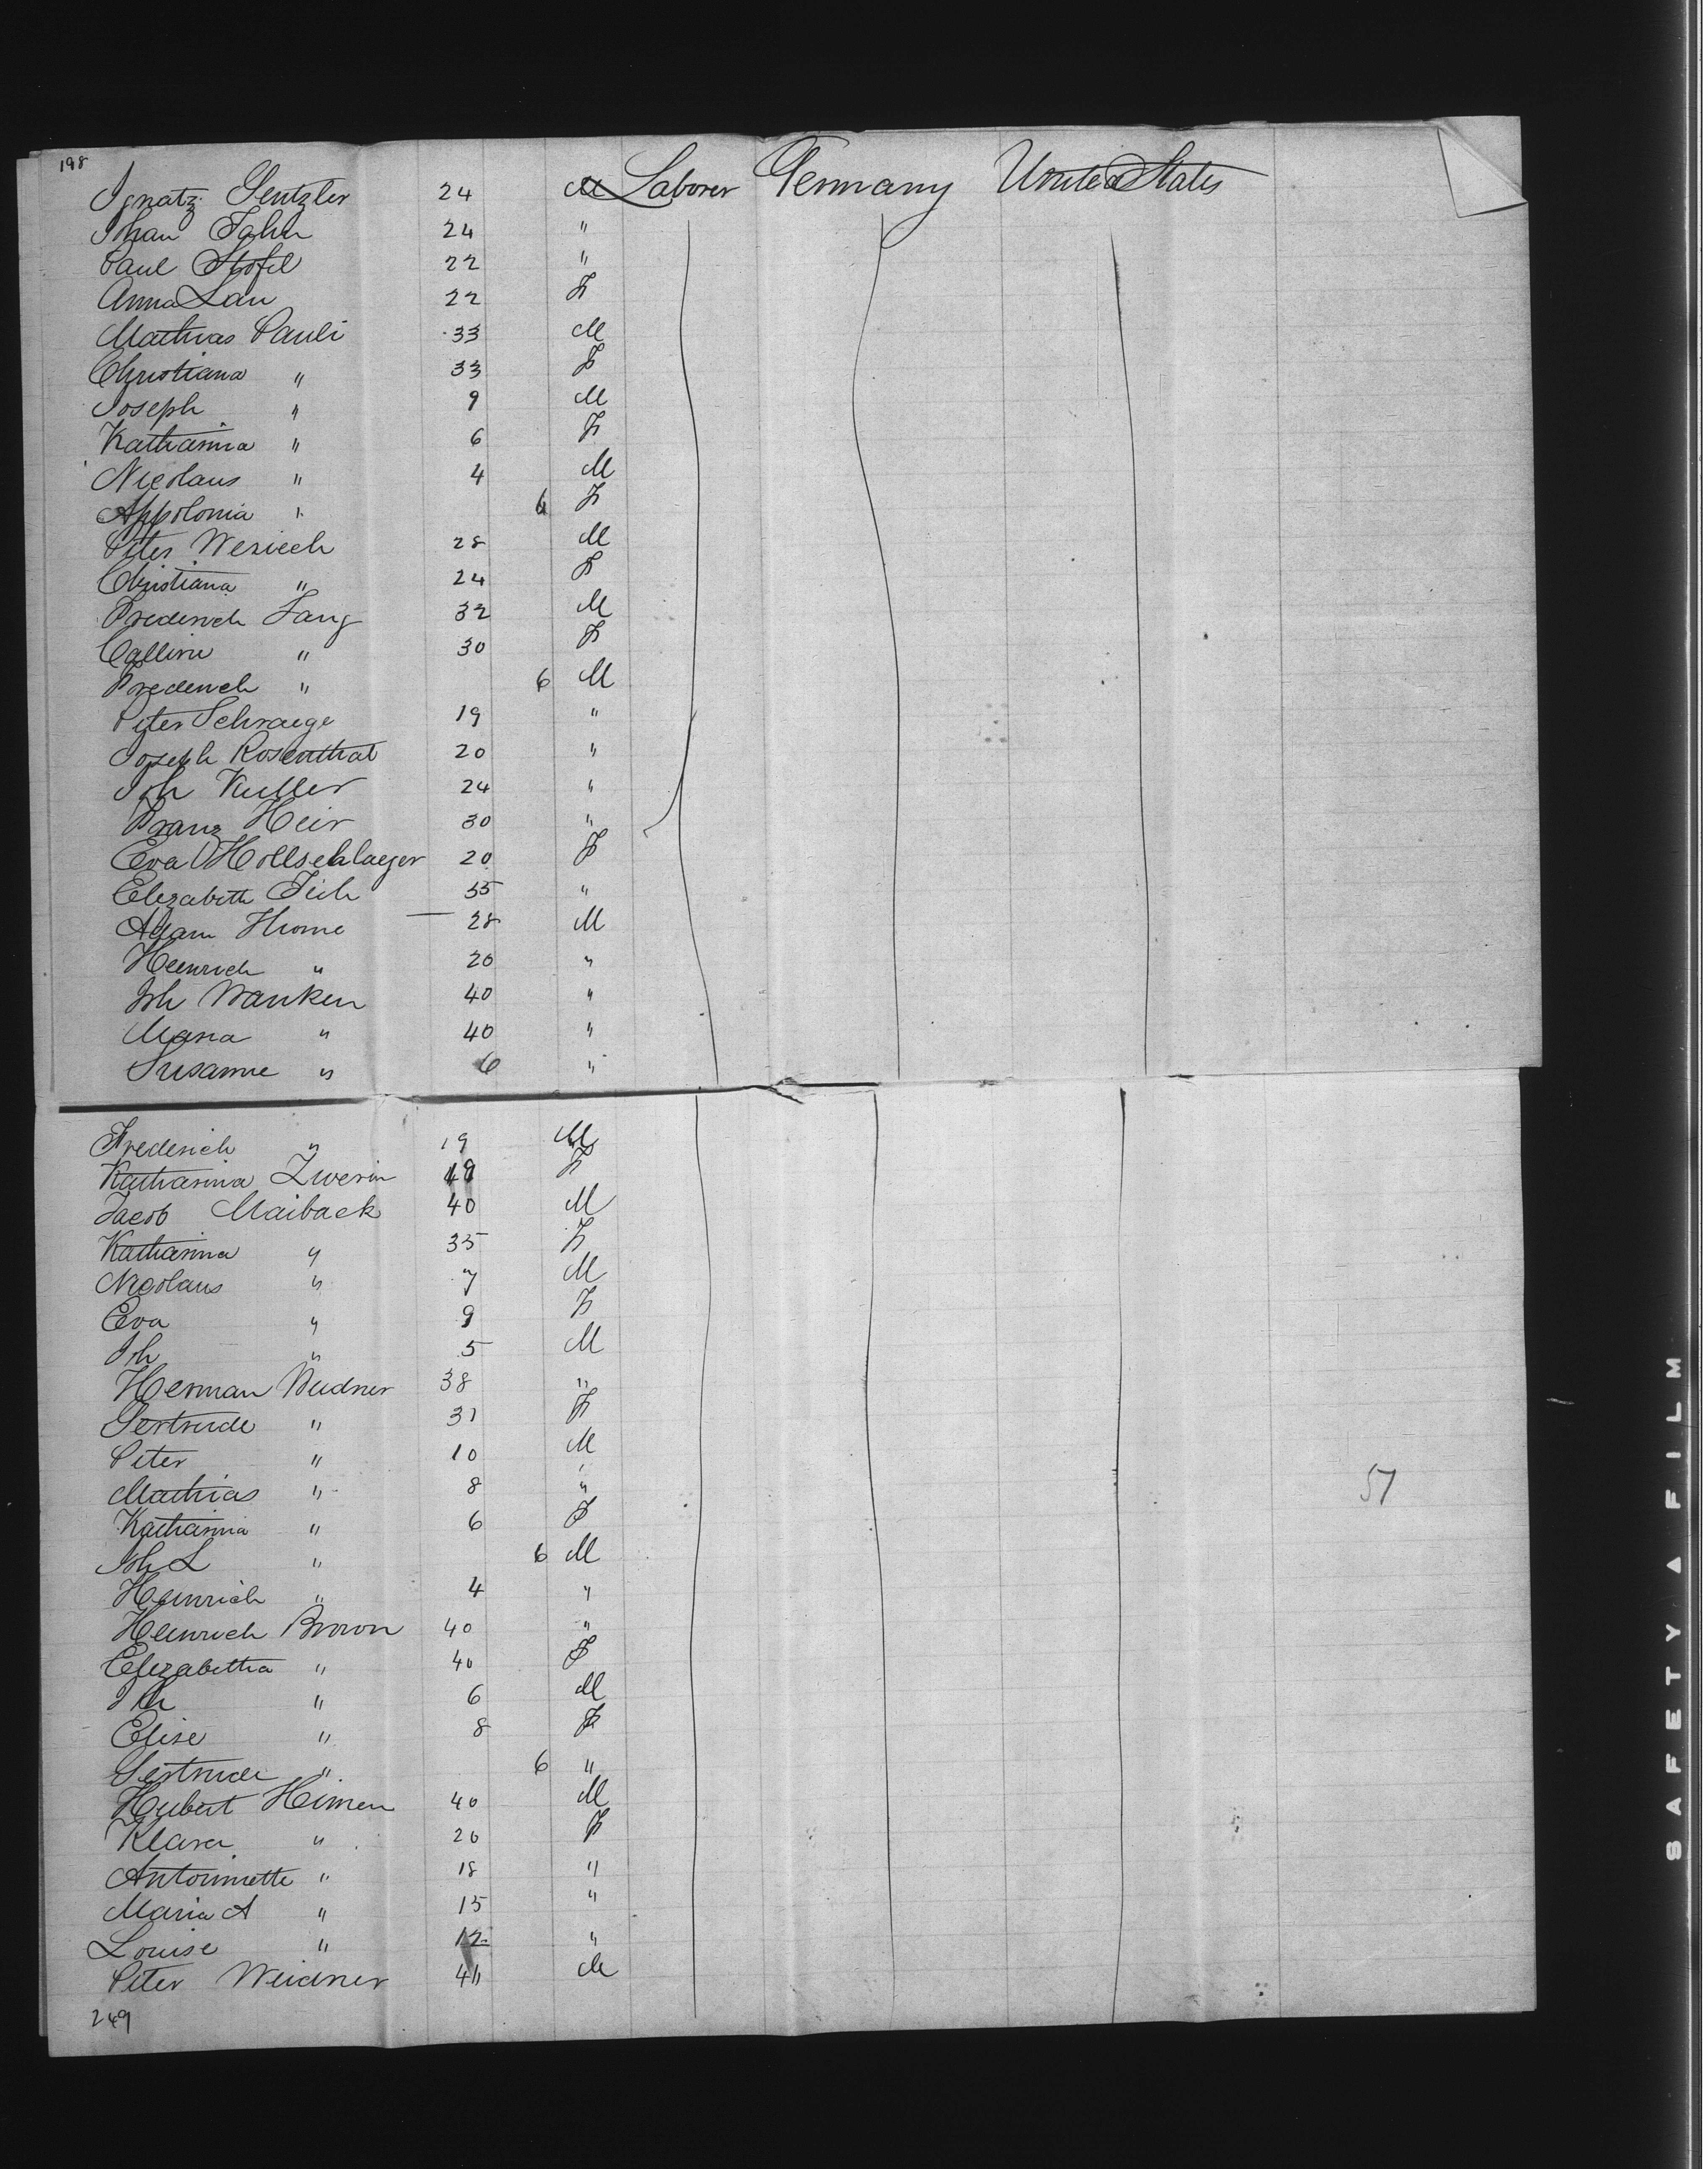 198
Ignatz Gentzler 24 M Laborer Germany United States
Johan Jahn 24 "
Paul Stofel 22 "
Anna Lau 22 F
Mathias Pauli 33 M
Christiana " 33 F
Joseph " 9 M
Katharina " 6 F
Nicolaus " 4 M
Appolonia " 6 F
Peter Werich 28 M
Christiana " 24 F
Frederich Lang 32 M
Calline " 30 F
Frederich " 6 M
Peter Schraege 19 "
Joseph Rosenthal 20 "
Joh Kuller 24 "
Franz Heir 30 "
Eva Hollschlaeger 20 F
Elizabeth Fich 35 "
Adam Thome 28 M
Heinrich " 20 "
Joh Wanken 40 "
Maria " 40 "
Susanne " 6 "
Frederich " 19 M
Katharina Zwerin F
Jacob Maiback 40 M
Katharina " 35 F
Nicolaus " 7 M
Eva " 9 F
Joh " 5 M
Herman Weidner 38 "
Gertrude " 31 F
Peter " 10 M
Mathias " 8 "
Katharina " 6 F
Joh L " 6 M
Heinrich " 4 "
Heinrich Brown 40 "
Elizabetha " 40 F
Joh " 6 M
Elise " 8 F
Gertrude " 6 "
Hubert Heimen 40 M
Klara " 20 F
Antoinnette " 18 "
Maria A " 15 "
Louise " 12 "
Peter Weidner 40 M
57
249
SAFETY ▲ FILM